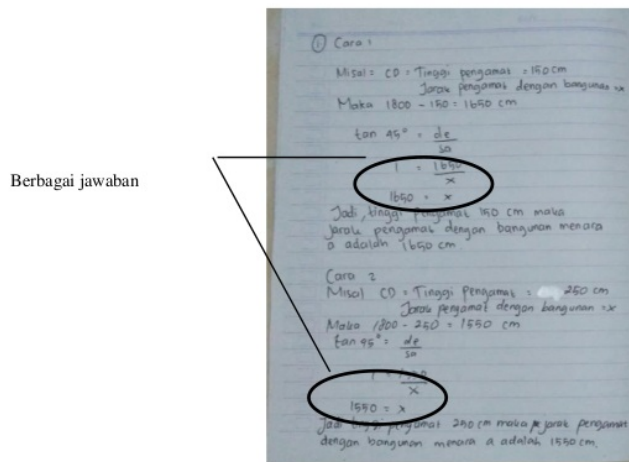 Berbagai jawaban
① Cara 1
Misal = CD = Tinggi pengamat = 150 cm
Jarak pengamat dengan bangunan = x
Maka 1800 - 150 = 1650 cm
tan 45° = de
sa
1 = 1650
x
1650 = x
Jadi, tinggi pengamat 150 cm maka
jarak pengamat dengan bangunan menara
a adalah 1650 cm.
Cara 2
Misal CD = Tinggi pengamat = 250 cm
Jarak pengamat dengan bangunan = x
Maka 1800 - 250 = 1550 cm
tan 45° = de
sa
x
1550 = x
Jadi tinggi pengamat 250 cm maka jarak pengamat
dengan bangunan menara a adalah 1550 cm.